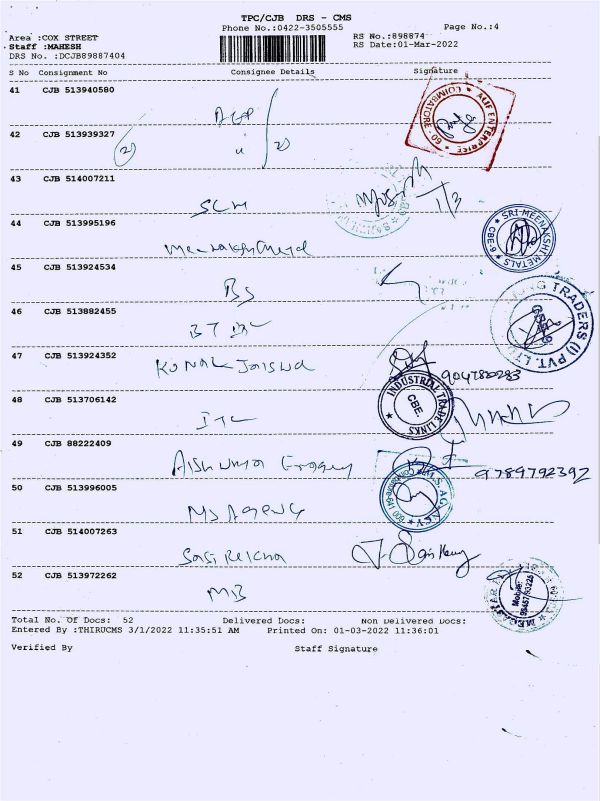 TPC/CJB DRS - CMS
Phone No.:0422-3505555
Page No.:4
Area :COX STREET
RS No.:898874
Staff :MAHESH
RS Date:01-Mar-2022
DRS No. :DCJB89887404
S No Consignment No Consignee Details Signature
41 CJB 513940580
COIMBATORE - 60
ALIF ENTERPRICE
42 CJB 513939327
43 CJB 514007211
SCM
1/3
44 CJB 513995196
SRI MEENAKSHI METALS
CBE-6
45 CJB 513924534
BS
46 CJB 513882455
TRADERS (I) PVT. LTD
47 CJB 513924352
48 CJB 513706142
ITC
INDUSTRIAL TRADE LINKS
CBE.
49 CJB 88222409
9789792392
50 CJB 513996005
MS Agency
51 CJB 514007263
Sasi Rekha
52 CJB 513972262
MB
Mobile:
Total No. Of Docs: 52 Delivered Docs: Non Delivered Docs:
Entered By :THIRUCMS 3/1/2022 11:35:51 AM Printed On: 01-03-2022 11:36:01
Verified By Staff Signature